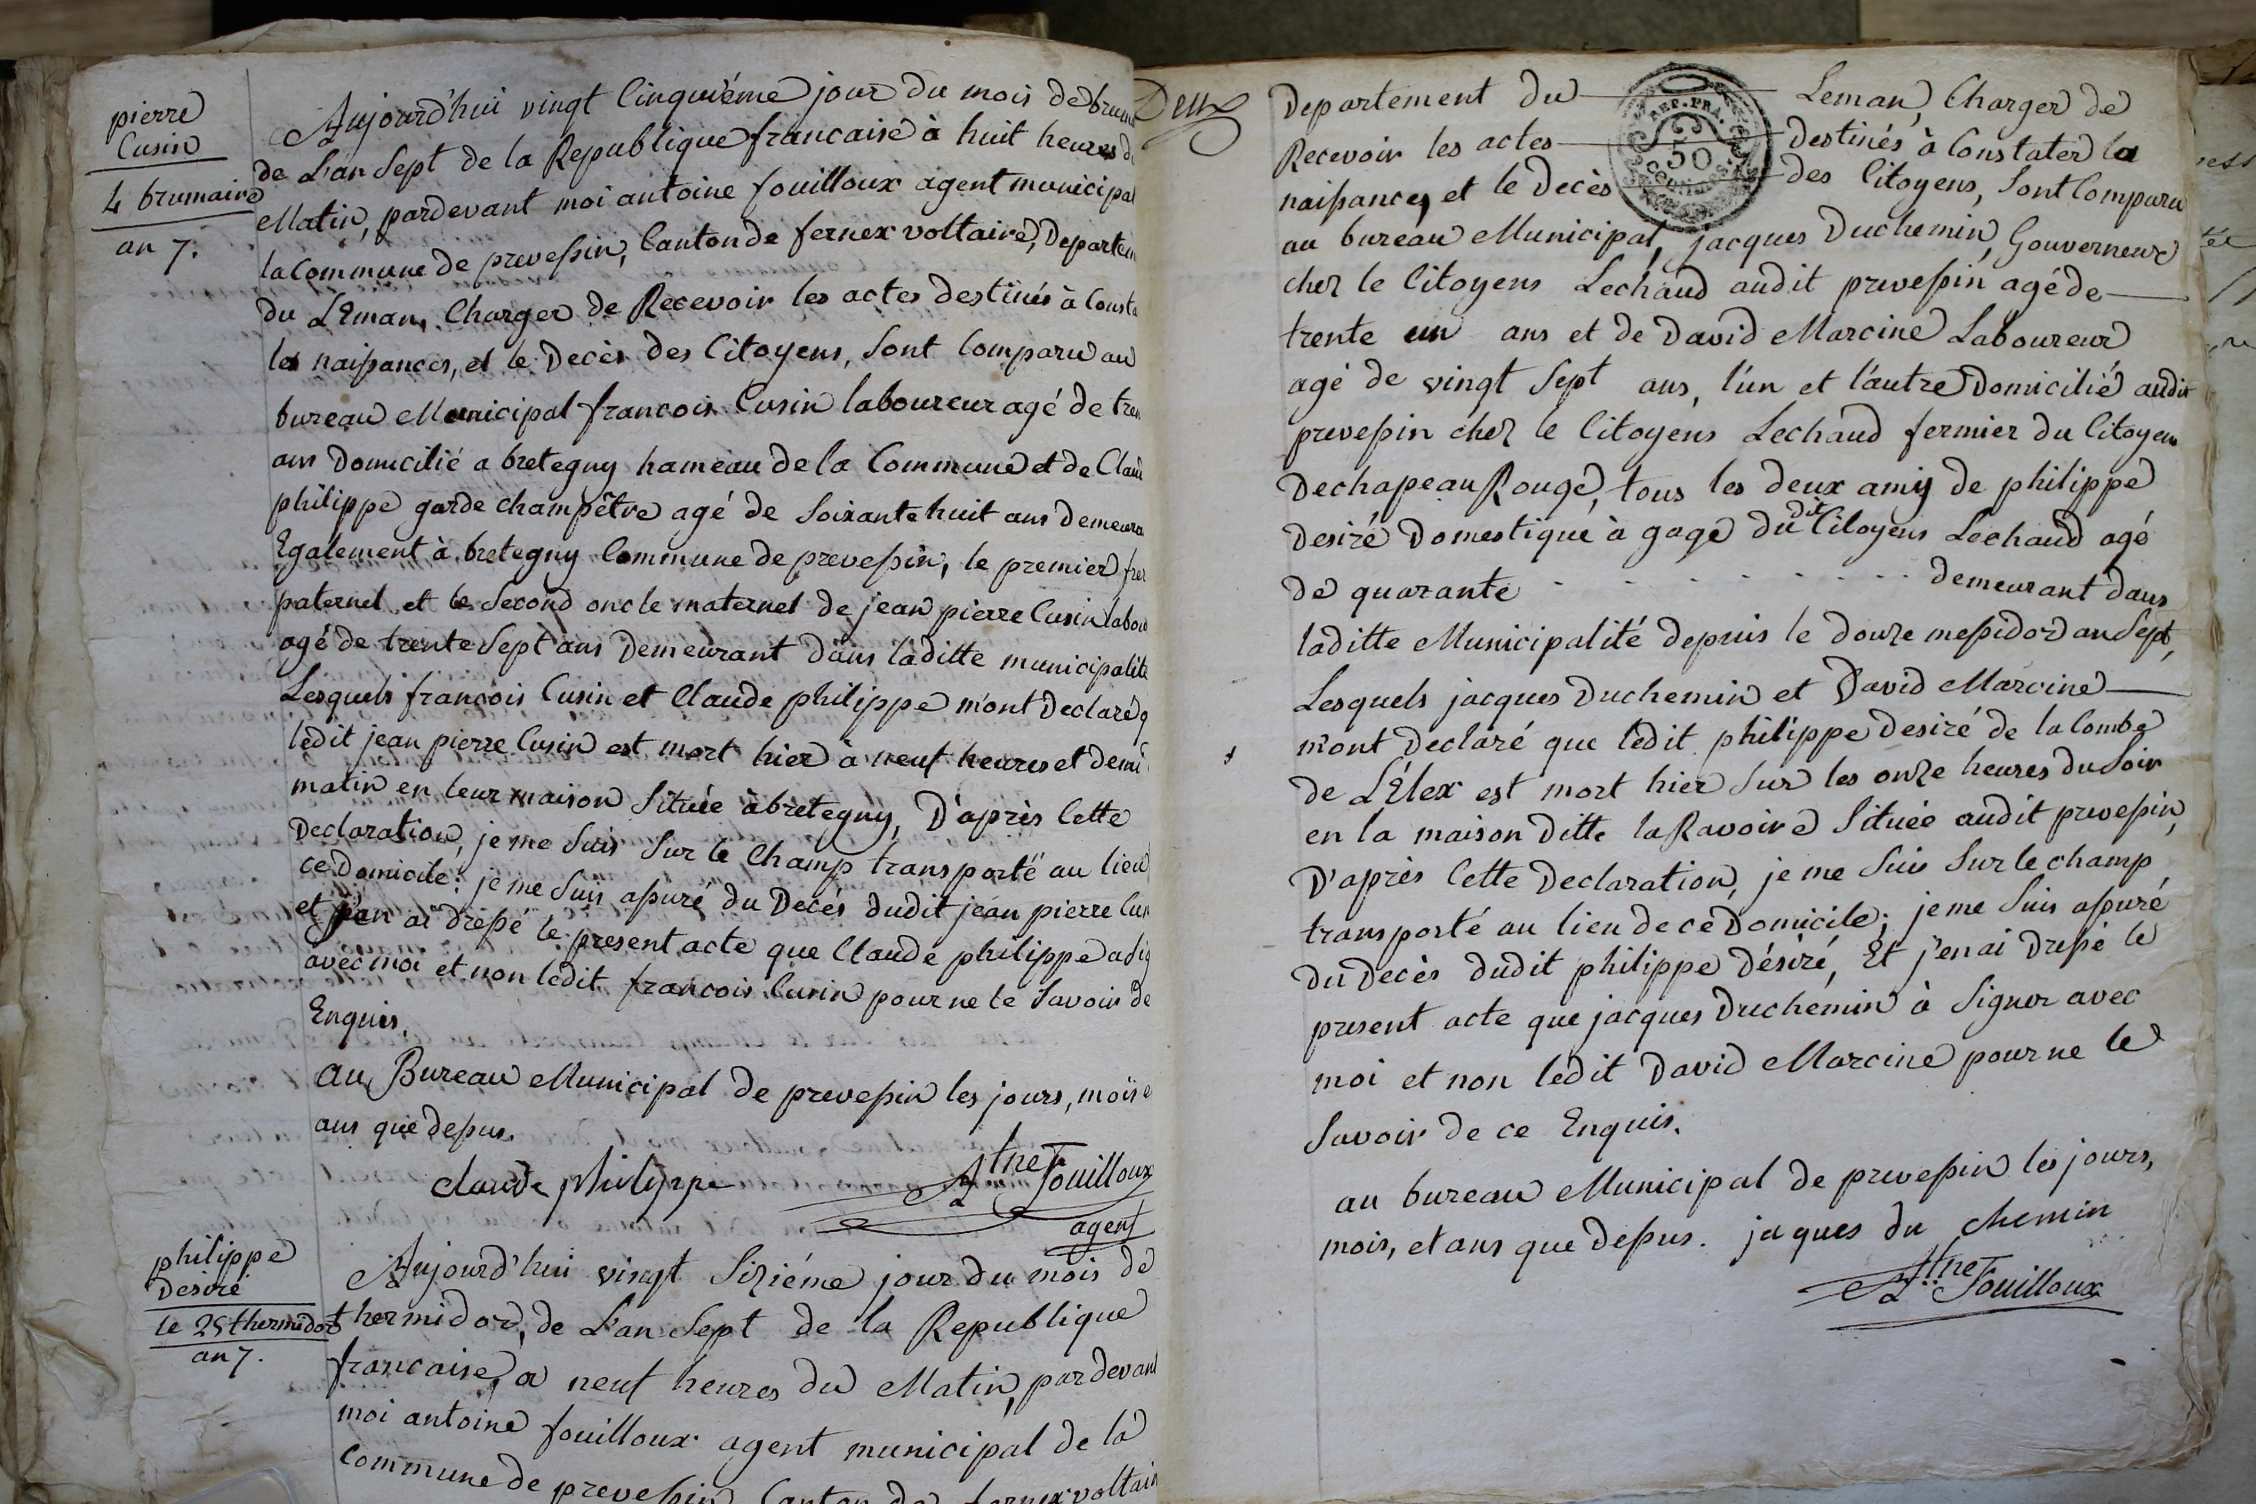 pierre
Cusin
4 brumaire
an 7.
Aujourd'hui vingt Cinquiéme jour du mois de brum
de L'an Sept de la Republique francaise à huit heures d
Matin, pardevant moi antoine fouilloux agent municipal
la Commune de prevessin, Canton de fernex voltaire, Departem
du LEman, Charger de Recevoir les actes destinés à Consta
les naissances, et le Decès des Citoyens, Sont Comparu au
bureau Municipal francois Cusin laboureur agé de tren
ans Domicilié a bretegny hameau de la Commune et de Claud
philippe garde champêtre agé de Soixante huit ans demeura
Egalement à bretegny Commune de prevessin, le premier frer
paternel et le Second oncle maternel de jean pierre Cusin labou
agé de trente Sept ans Demeurant dans laditte municipalité
Lesquels francois Cusin et Claude philippe m'ont Declaré q
ledit jean pierre Cusin est mort hier à neuf heures et demi
matin en leur maison Située à bretegny, D'après Cette
Declaration, je me Suis Sur le Champ transporté au lieu
ce Domicile; je me Suis assuré du Decés dudit jean pierre Cus
et j'en ai dressé le present acte que Claude philippe a sig
avec moi et non ledit francois Cusin pour ne le Savoir de
Enquis.
au Bureau Municipal de prevessin les jours, mois e
ans que dessus.
claude philippe Atne Fouilloux
agent
philippe
Desiré
le 25 thermidor
an 7.
Aujourd'hui vingt Siziéme jour du mois de
thermidor, de L'an Sept de la Republique
francaise, a neuf heures du Matin, pardevant
moi antoine fouilloux agent municipal de la
Commune de prevessin Canton de fernex voltair
Deux
Departement du Leman, Charger de
REP. FRA.
50
CENTIMES
Recevoir les actes destinés à Constater la
naissance, et le Decès des Citoyens, Sont Comparu
au bureau Municipal, jacques Duchemin, Gouverneur
chez le Citoyens Lechaud audit prevessin agé de
trente un ans et de David Marcine Laboureur
agé de vingt Sept ans, l'un et l'autre Domicilié audit
prevessin chez le Citoyens Lechaud fermier du Citoyen
Dechapeau Rouge, tous les deux amis de philippe
Desiré Domestique à gage dudit Citoyens Lechaud agé
de quarante demeurant dans
laditte Municipalité depuis le douze messidor an Sept,
Lesquels jacques Duchemin et David Marcine
m'ont Declaré que ledit philippe Desiré de la Combe
de L'Elex est mort hier Sur les onze heures du Soir
en la maison Ditte la Ravoire Située audit prevessin,
D'après Cette Declaration, je me Suis Sur le champ
transporté au lieu de ce Domicile; je me Suis assuré
du Decès dudit philippe Désiré, Et j'en ai Dressé le
present acte que jacques Duchemin à Signer avec
moi et non ledit David Marcine pour ne le
Savoir de ce Enquis.
au bureau Municipal de prevessin les jours,
mois, et ans que Dessus. jaques du chemin
Atne Fouilloux